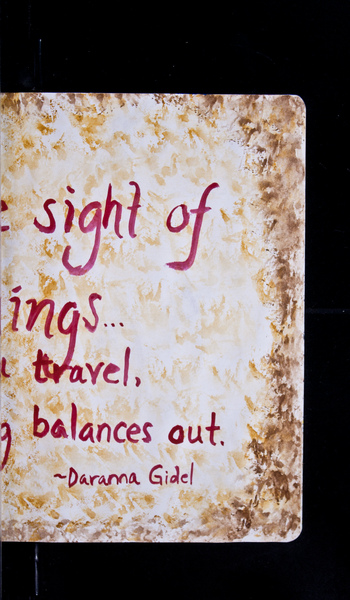 sight of
ings...
travel,
balances out.
~Daranna Gidel